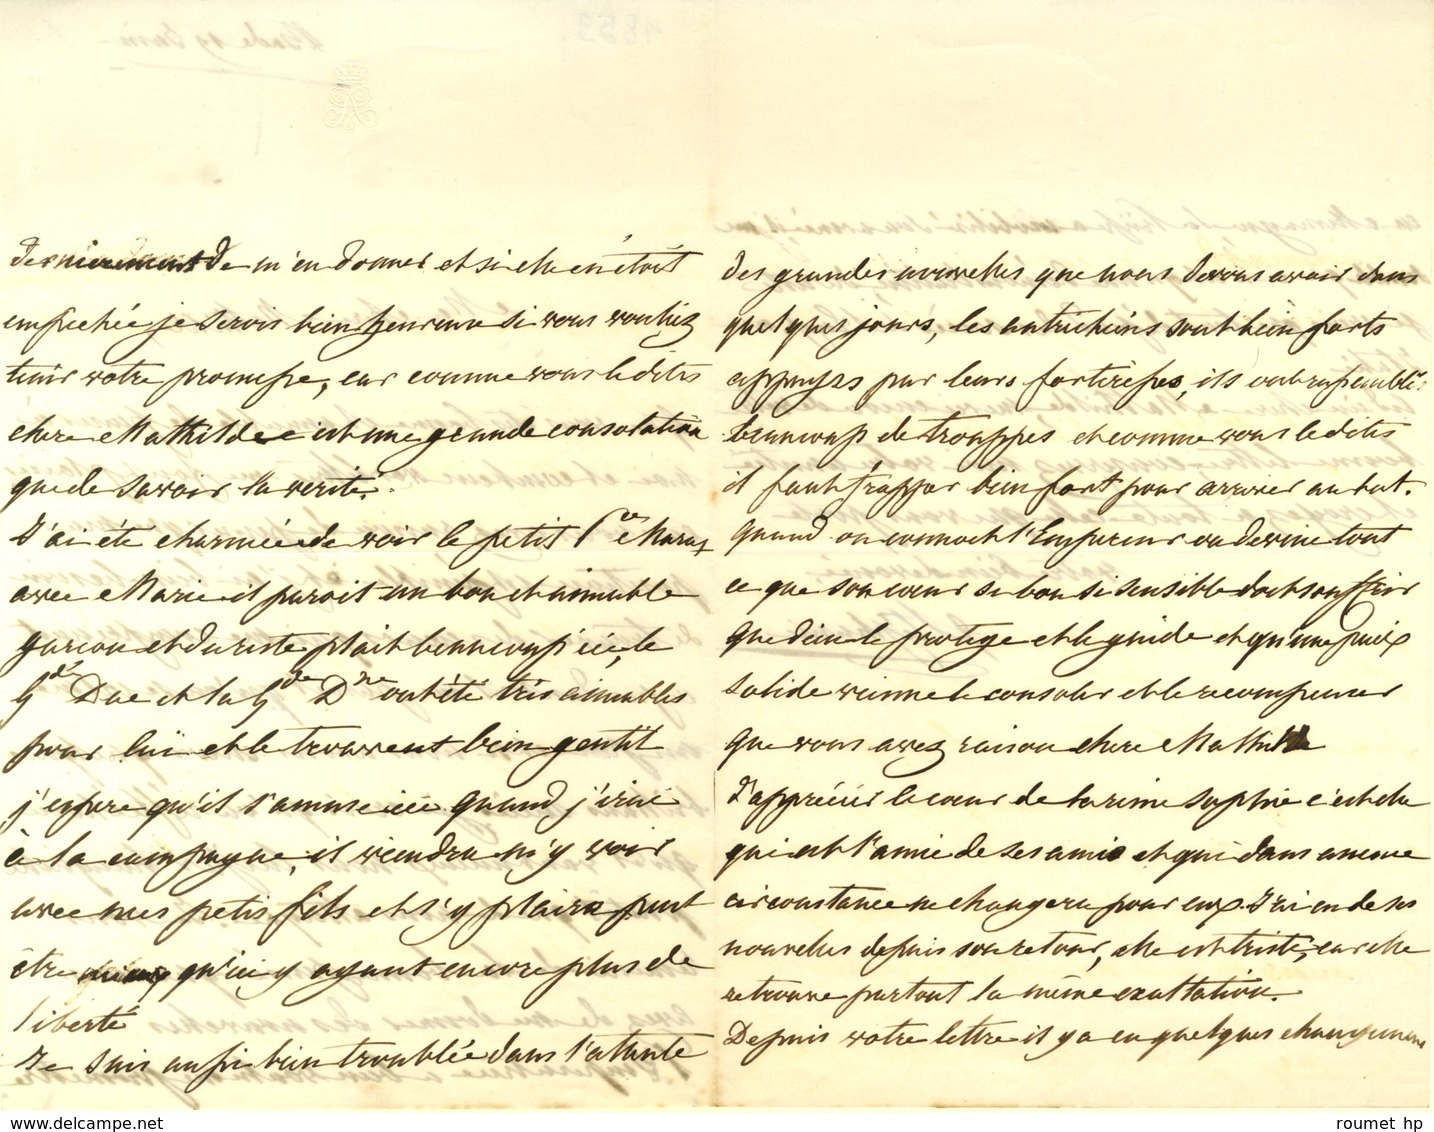 dernierement de m'en donner et si elle en étoit
empechée je serois bien heureuse si vous vouliez
tenir votre promesse, car comme vous le dites
chere Mathilde c'est une grande consolation
que de savoir la verité.
J'ai été charmée de voir le petit Pce Murat
avec Marie il paroit un bon et aimable
garcon et du reste plait beaucoup ici, le
Gd Duc et la Gde Dsse ont été très aimables
pour lui et le trouvent bien gentil
j'espere qu'il s'amuse ici quand j'irai
à la campagne, il viendra m'y voir
avec mes petis fils et s'y plaira peut
être qu'ici y ayant encore plus de
liberté
Je suis aussi bien troublée dans l'attente
des grandes nouvelles que nous devons avoir dans
quelques jours, les autrichiens sont bien forts
appuyés par leurs forteresses, ils ont rassemblés
beaucoup de trouppes et comme vous le dites
il faut frapper bien fort pour arriver au but.
Quand on connoit l'Empereur on devine tout
ce que son cœur si bon si sensible doit souffrir
que dieu le protege et le guide et qu'une paix
solide vienne le consoler et le recompenser
que vous avez raison chere Mathilde
d'apprécier le cœur de la reine Sophie c'est elle
qui est l'amie de ses amis et qui dans aucune
circonstance ne changera pour eux. J'ai eu de ses
nouvelles depuis son retour, elle est triste, car elle
retrouve partout la même exaltation.
Depuis votre lettre il y a eu quelques changemens
roumet hp